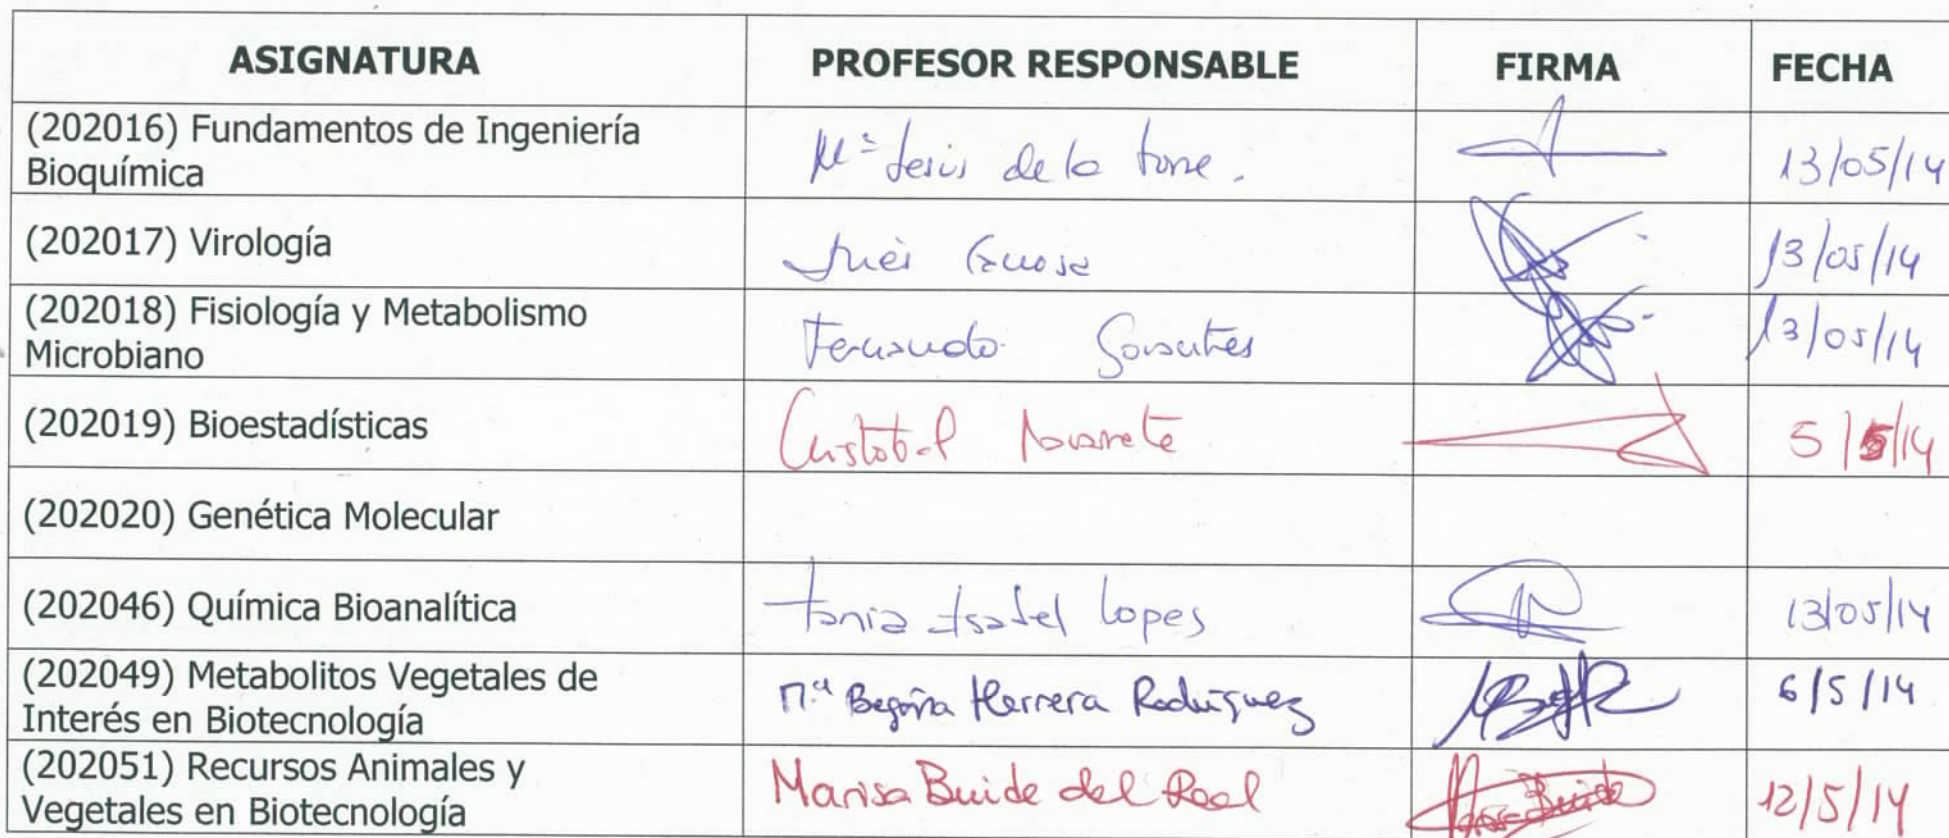 ASIGNATURA PROFESOR RESPONSABLE FIRMA FECHA
(202016) Fundamentos de Ingeniería
Bioquímica
Mª Jesús de la Torre. 13/05/14
(202017) Virología
Inés 13/05/14
(202018) Fisiología y Metabolismo
Microbiano
Fernando Govantes 13/05/14
(202019) Bioestadísticas Cristobal Navarrete 5/5/14
(202020) Genética Molecular
(202046) Química Bioanalítica Tania Isabel Lopes 13/05/14
(202049) Metabolitos Vegetales de
Interés en Biotecnología
M.ª Begoña Herrera Rodríguez 6/5/14
(202051) Recursos Animales y
Vegetales en Biotecnología
Marisa Buide del Real 12/5/14